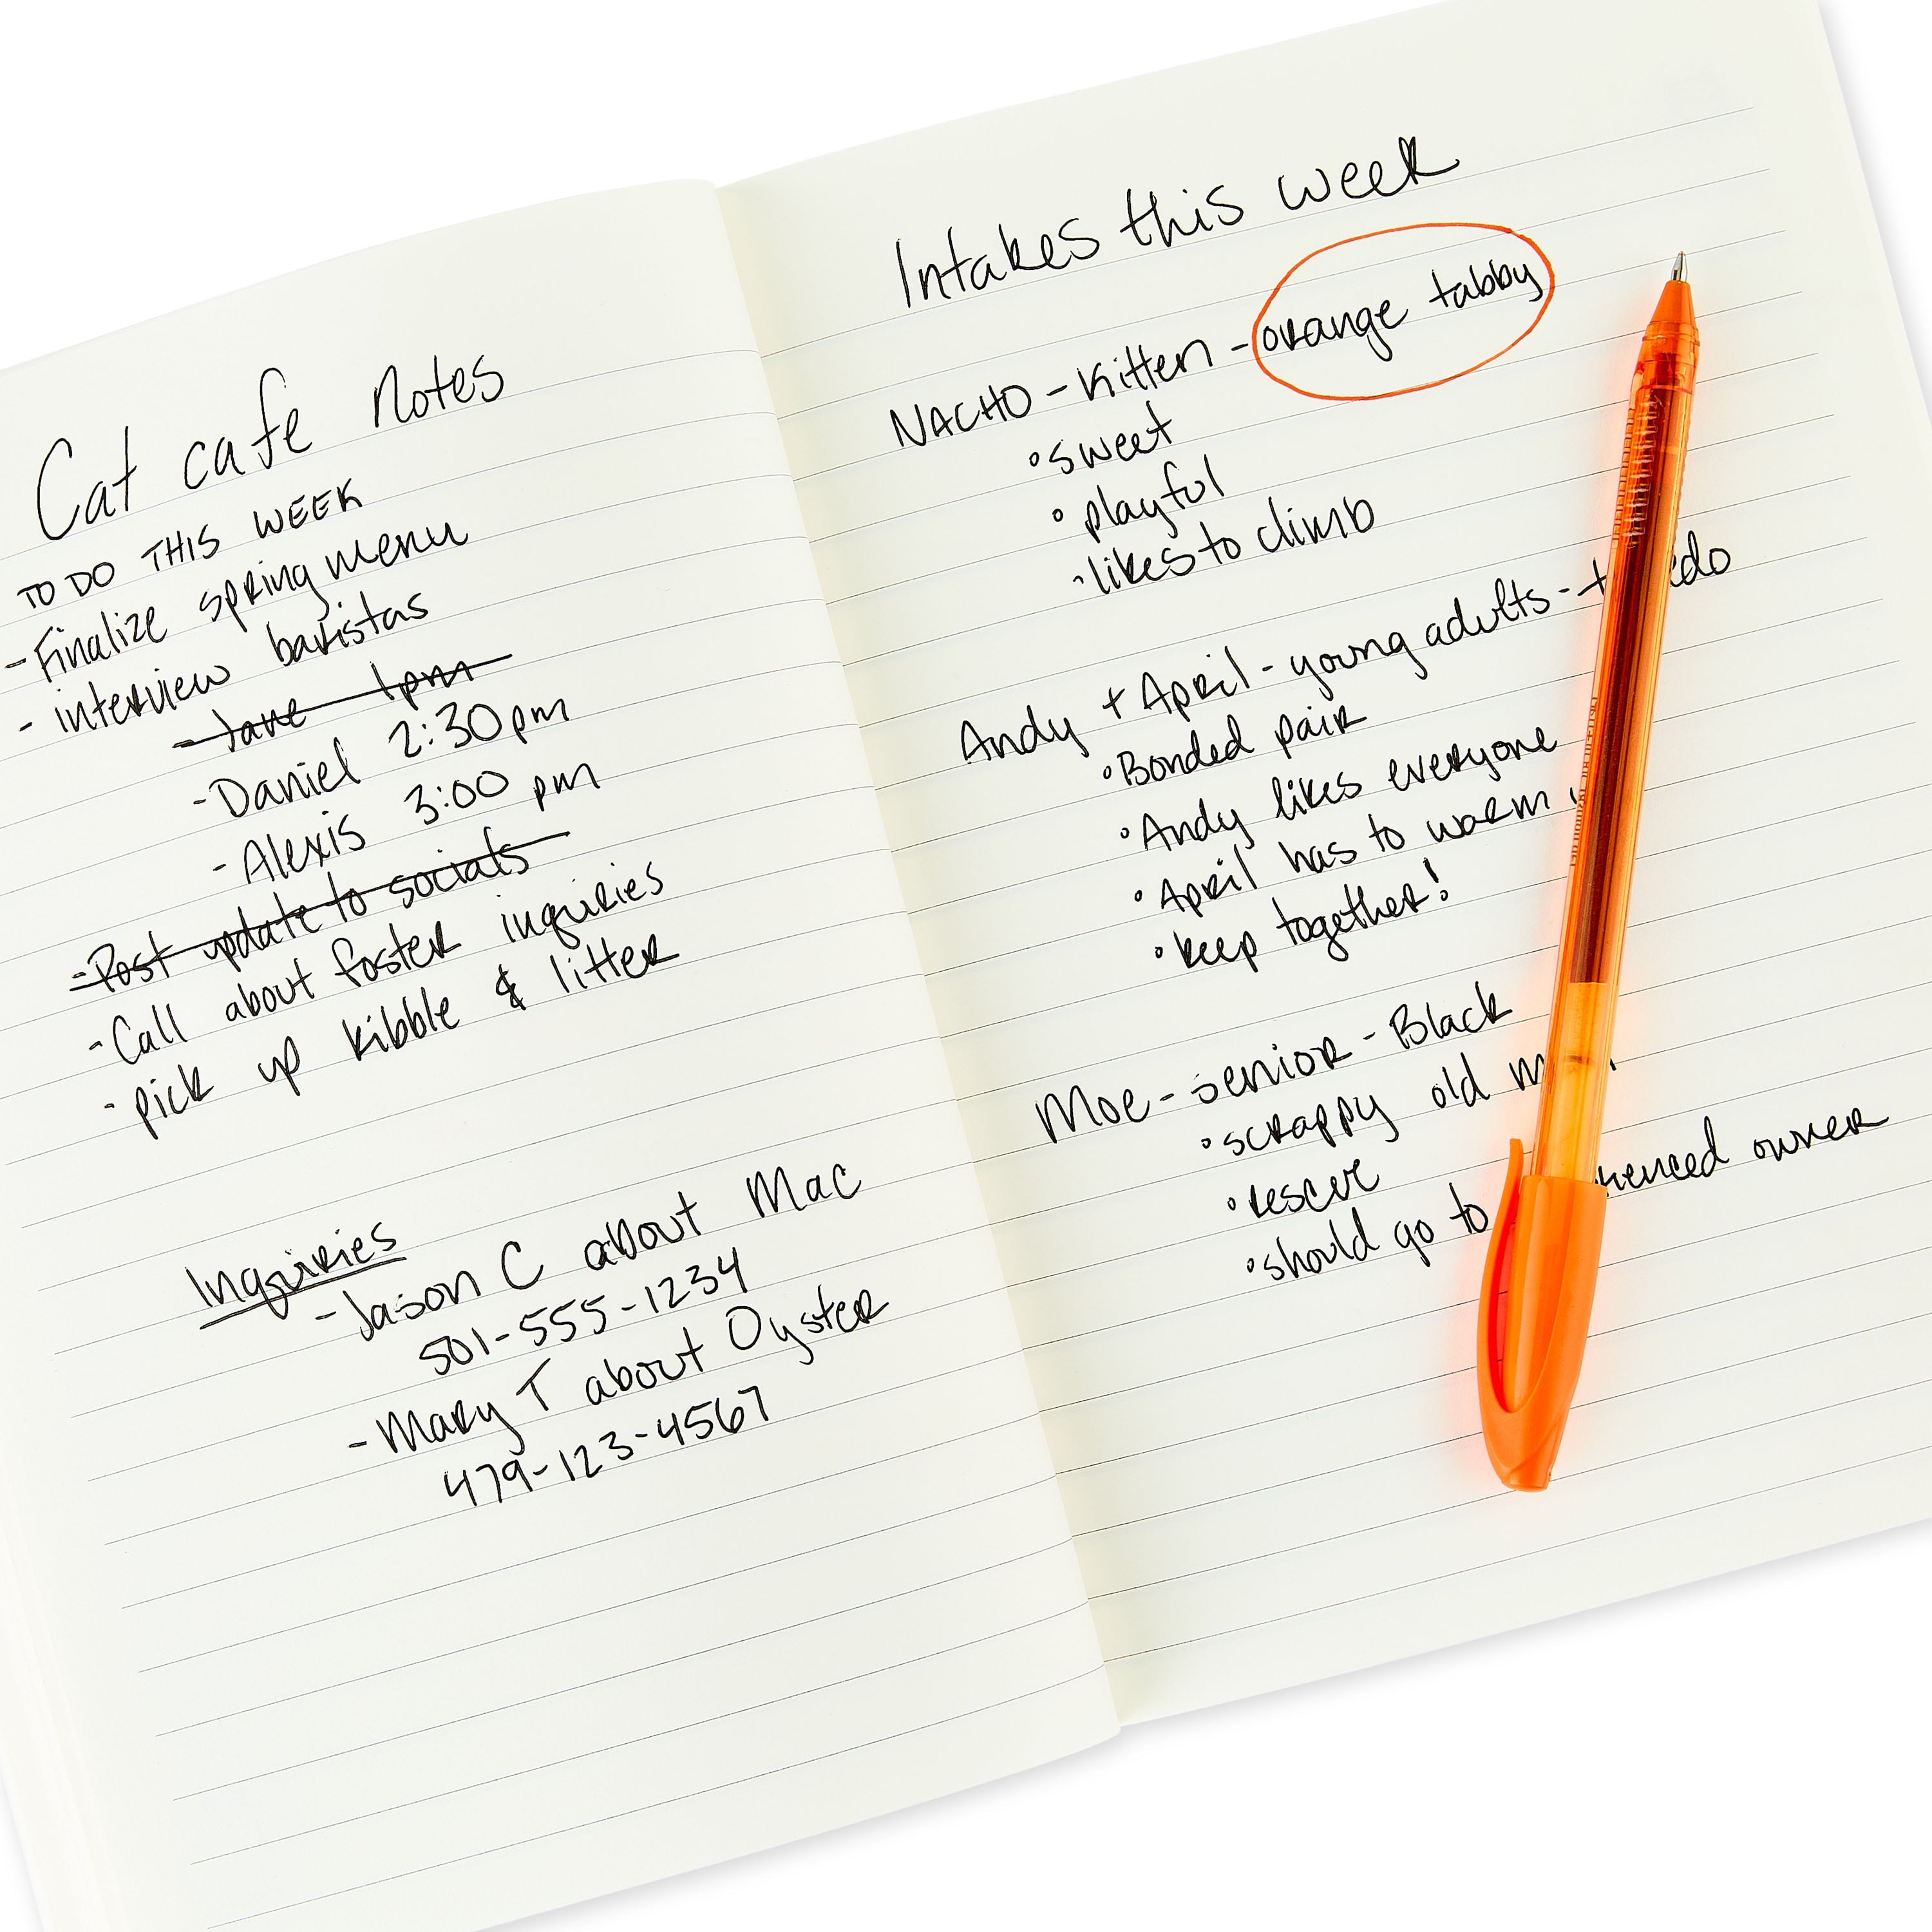 Cat cafe notes
TO DO THIS WEEK
- Finalize spring menu
- interview baristas
- Jane 1pm
- Daniel 2:30pm
- Alexis 3:00 pm
- Post update to socials
- Call about foster inquiries
- pick up kibble & litter
Inquiries
- Jason C about Mac
501-555-1234
- Mary T about Oyster
479-123-4567
Intakes this week
NACHO - Kitten - orange tabby
• sweet
• playful
• likes to climb
Andy + April - young adults -
• Bonded pair
• Andy likes everyone
• April has to warm
• keep together!
Moe - senior - Black
• scrappy old
• rescue
• should go to owner